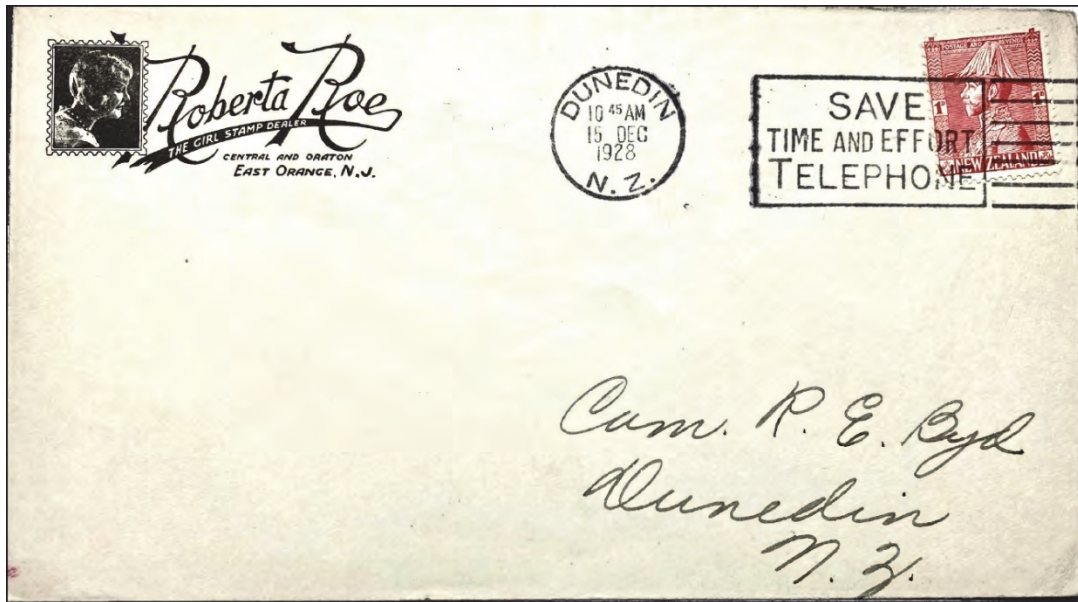 Roberta Roe
THE GIRL STAMP DEALER
CENTRAL AND ORATON
EAST ORANGE, N.J.
DUNEDIN
10 45 AM
15 DEC
1928
N.Z.
SAVE
TIME AND EFFORT
TELEPHONE
POSTAGE AND REVENUE
1D 1D
NEW ZEALAND
Com. R. E. Byd
Dunedin
N. Z.